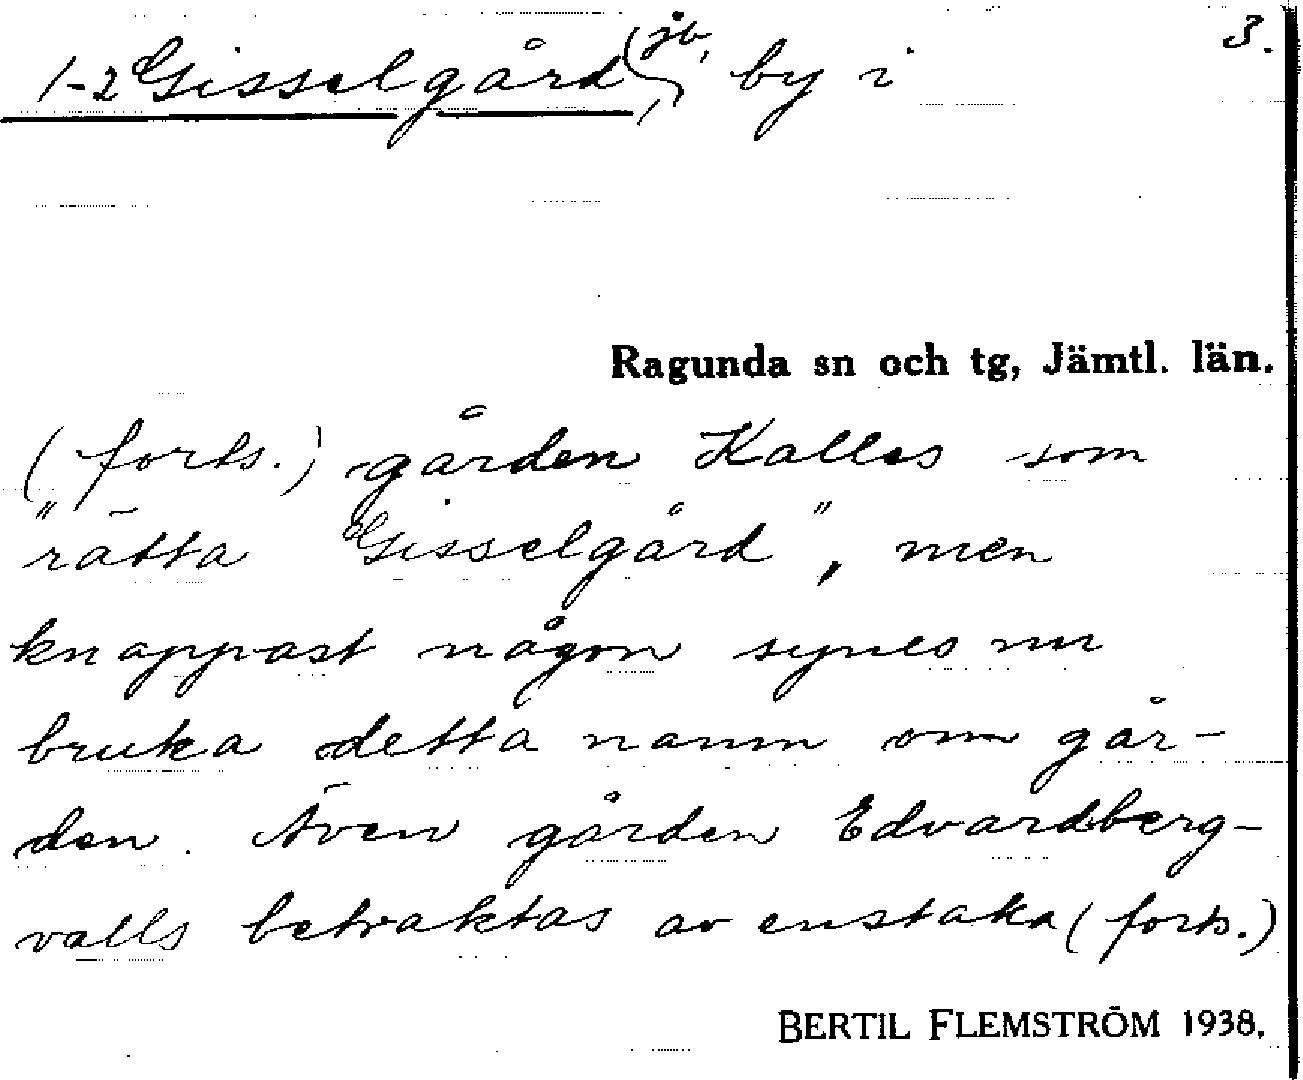 3.
1-2 Gisselgård (jb), by i
Ragunda sn och tg, Jämtl. län.
(forts.) gården Kalles som
"rätta Gisselgård", men
knappast någon synes nu
bruka detta namn om går-
den. Även gården Edvardberg-
valls betraktas av enstaka (forts.)
BERTIL FLEMSTRÖM 1938.